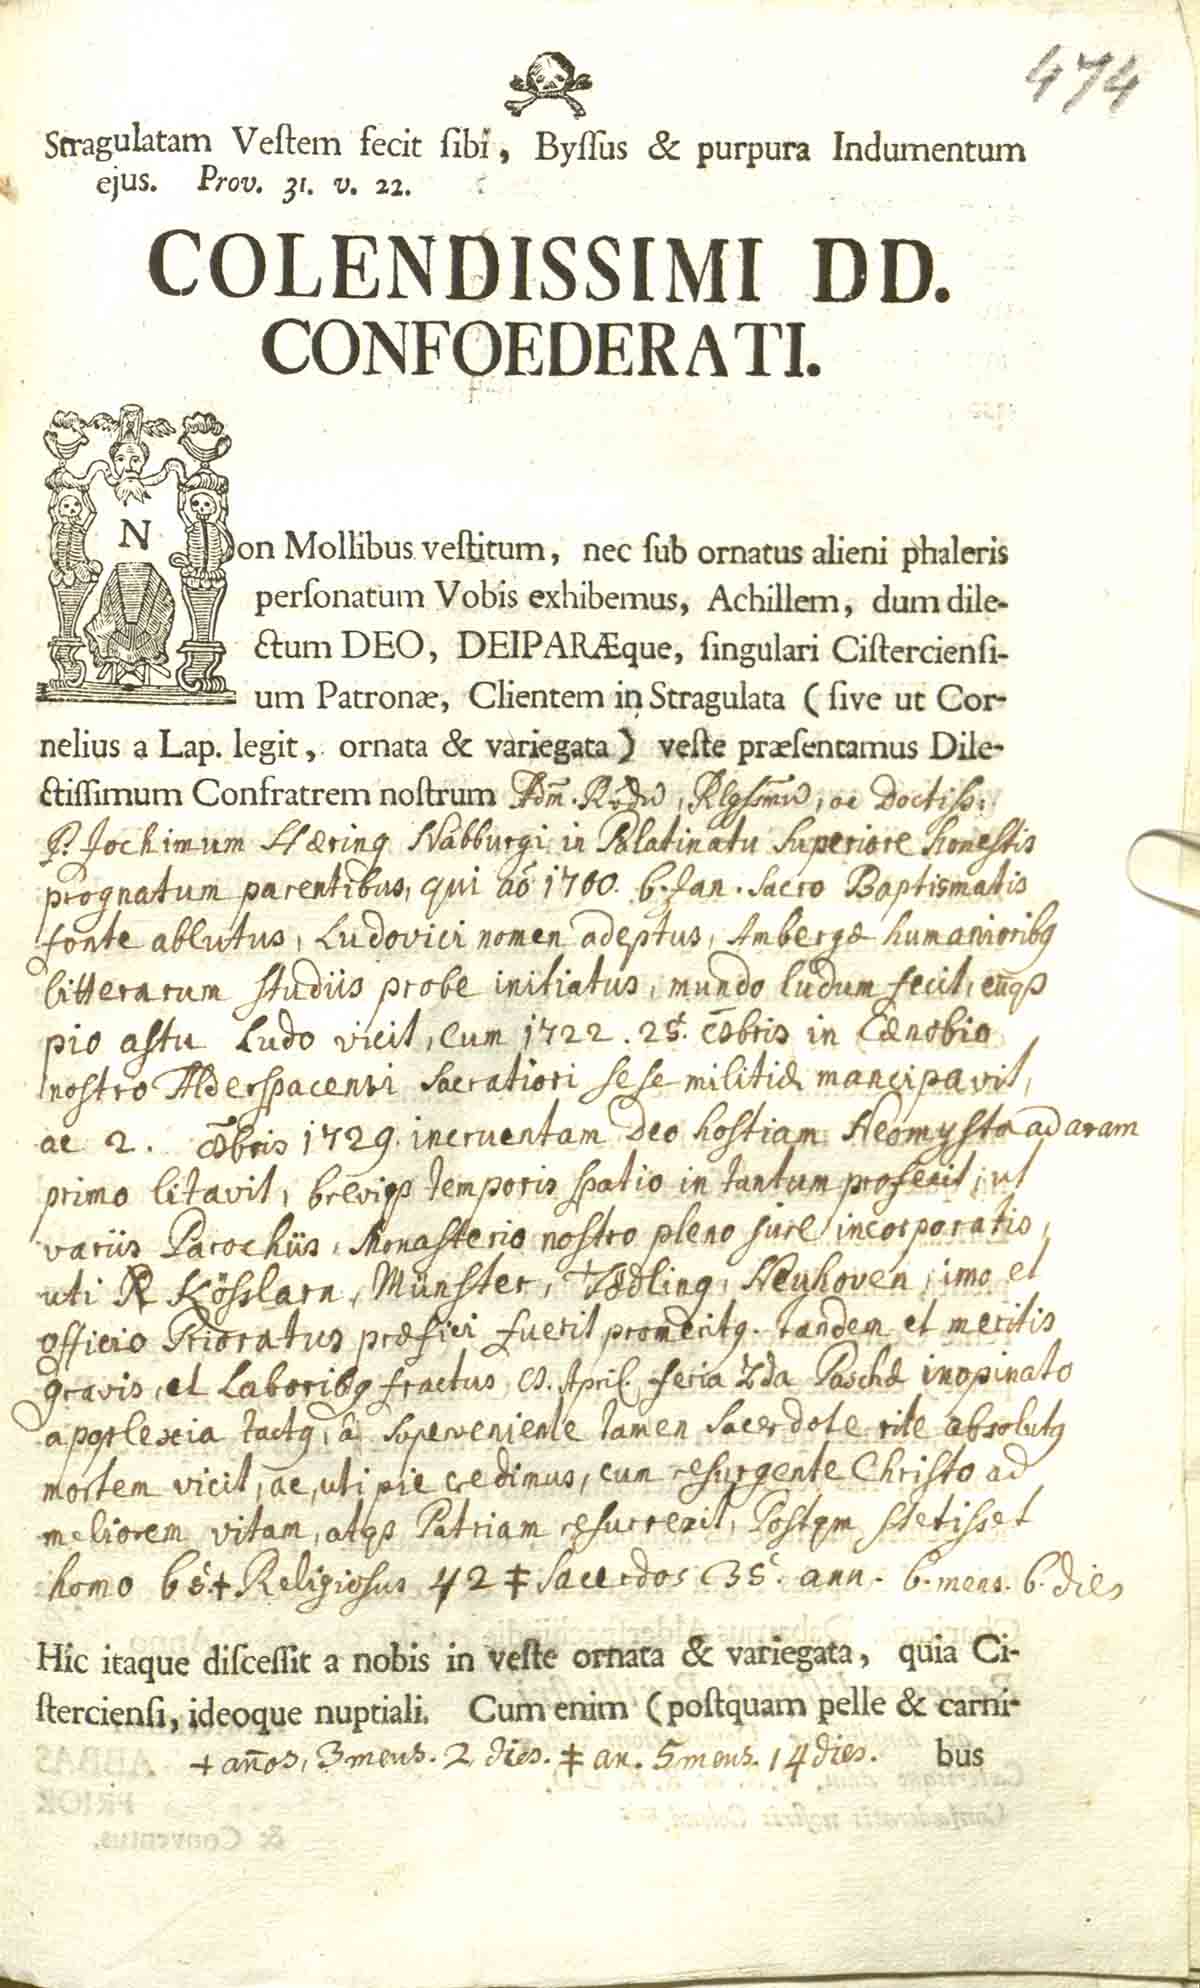 474
Stragulatam Vestem fecit sibi, Byssus & purpura Indumentum
ejus. Prov. 31. v. 22.
COLENDISSIMI DD.
CONFOEDERATI.
Non Mollibus vestitum, nec sub ornatus alieni phaleris
personatum Vobis exhibemus, Achillem, dum dile-
ctum DEO, DEIPARÆque, singulari Cisterciensi-
um Patronæ, Clientem in Stragulata (sive ut Cor-
nelius a Lap. legit, ornata & variegata) veste præsentamus Dile-
ctissimum Confratrem nostrum Adm. ac Doctiss:
P. Jochimum Hæring Nabburgi in Palatinatu Superiore honestis
prognatum parentibus, qui aō 1700. 6. Jan. Sacro Baptismatis
fonte ablutus, Ludovici nomen adeptus, Ambergæ humanioribq
litterarum studiis probe initiatus, mundo ludum fecit, eūqs
pio astu Ludo vicit, cum 1722. 25. 8bris in Cænobio
nostro Alderspacensi Sacratiori sese militiæ mancipavit,
ac 2. 8bris 1729. incruentam Deo hostiam Neomysta ad aram
primo litavit, breviqs temporis spatio in tantum profecit, ut
variis Parochiis, Monasterio nostro pleno jure incorporatis,
uti Kösslarn, Münster, Zædling, Neyhoven, imo et
officio Prioratus præfici fuerit promeritq. tandem et meritis
gravis, et Laboribq fractus, April. feria 2da Paschæ inopinato
apoplexia tactq, â superveniente tamen Sacerdote rite absolutq
mortem vicit, ac, uti pie credimus, cum resurgente Christo ad
meliorem vitam, atqs Patriam resurrexit, Postqm stetisset
homo 65 + Religiosus 42 ‡ Sacerdos 35. ann. 6. mens. 6. dies
Hic itaque discessit a nobis in veste ornata & variegata, quia Ci-
sterciensi, ideoque nuptiali. Cum enim (postquam pelle & carni-
+ años, 3 mens. 2 dies. ‡ an. 5 mens. 14 dies. bus